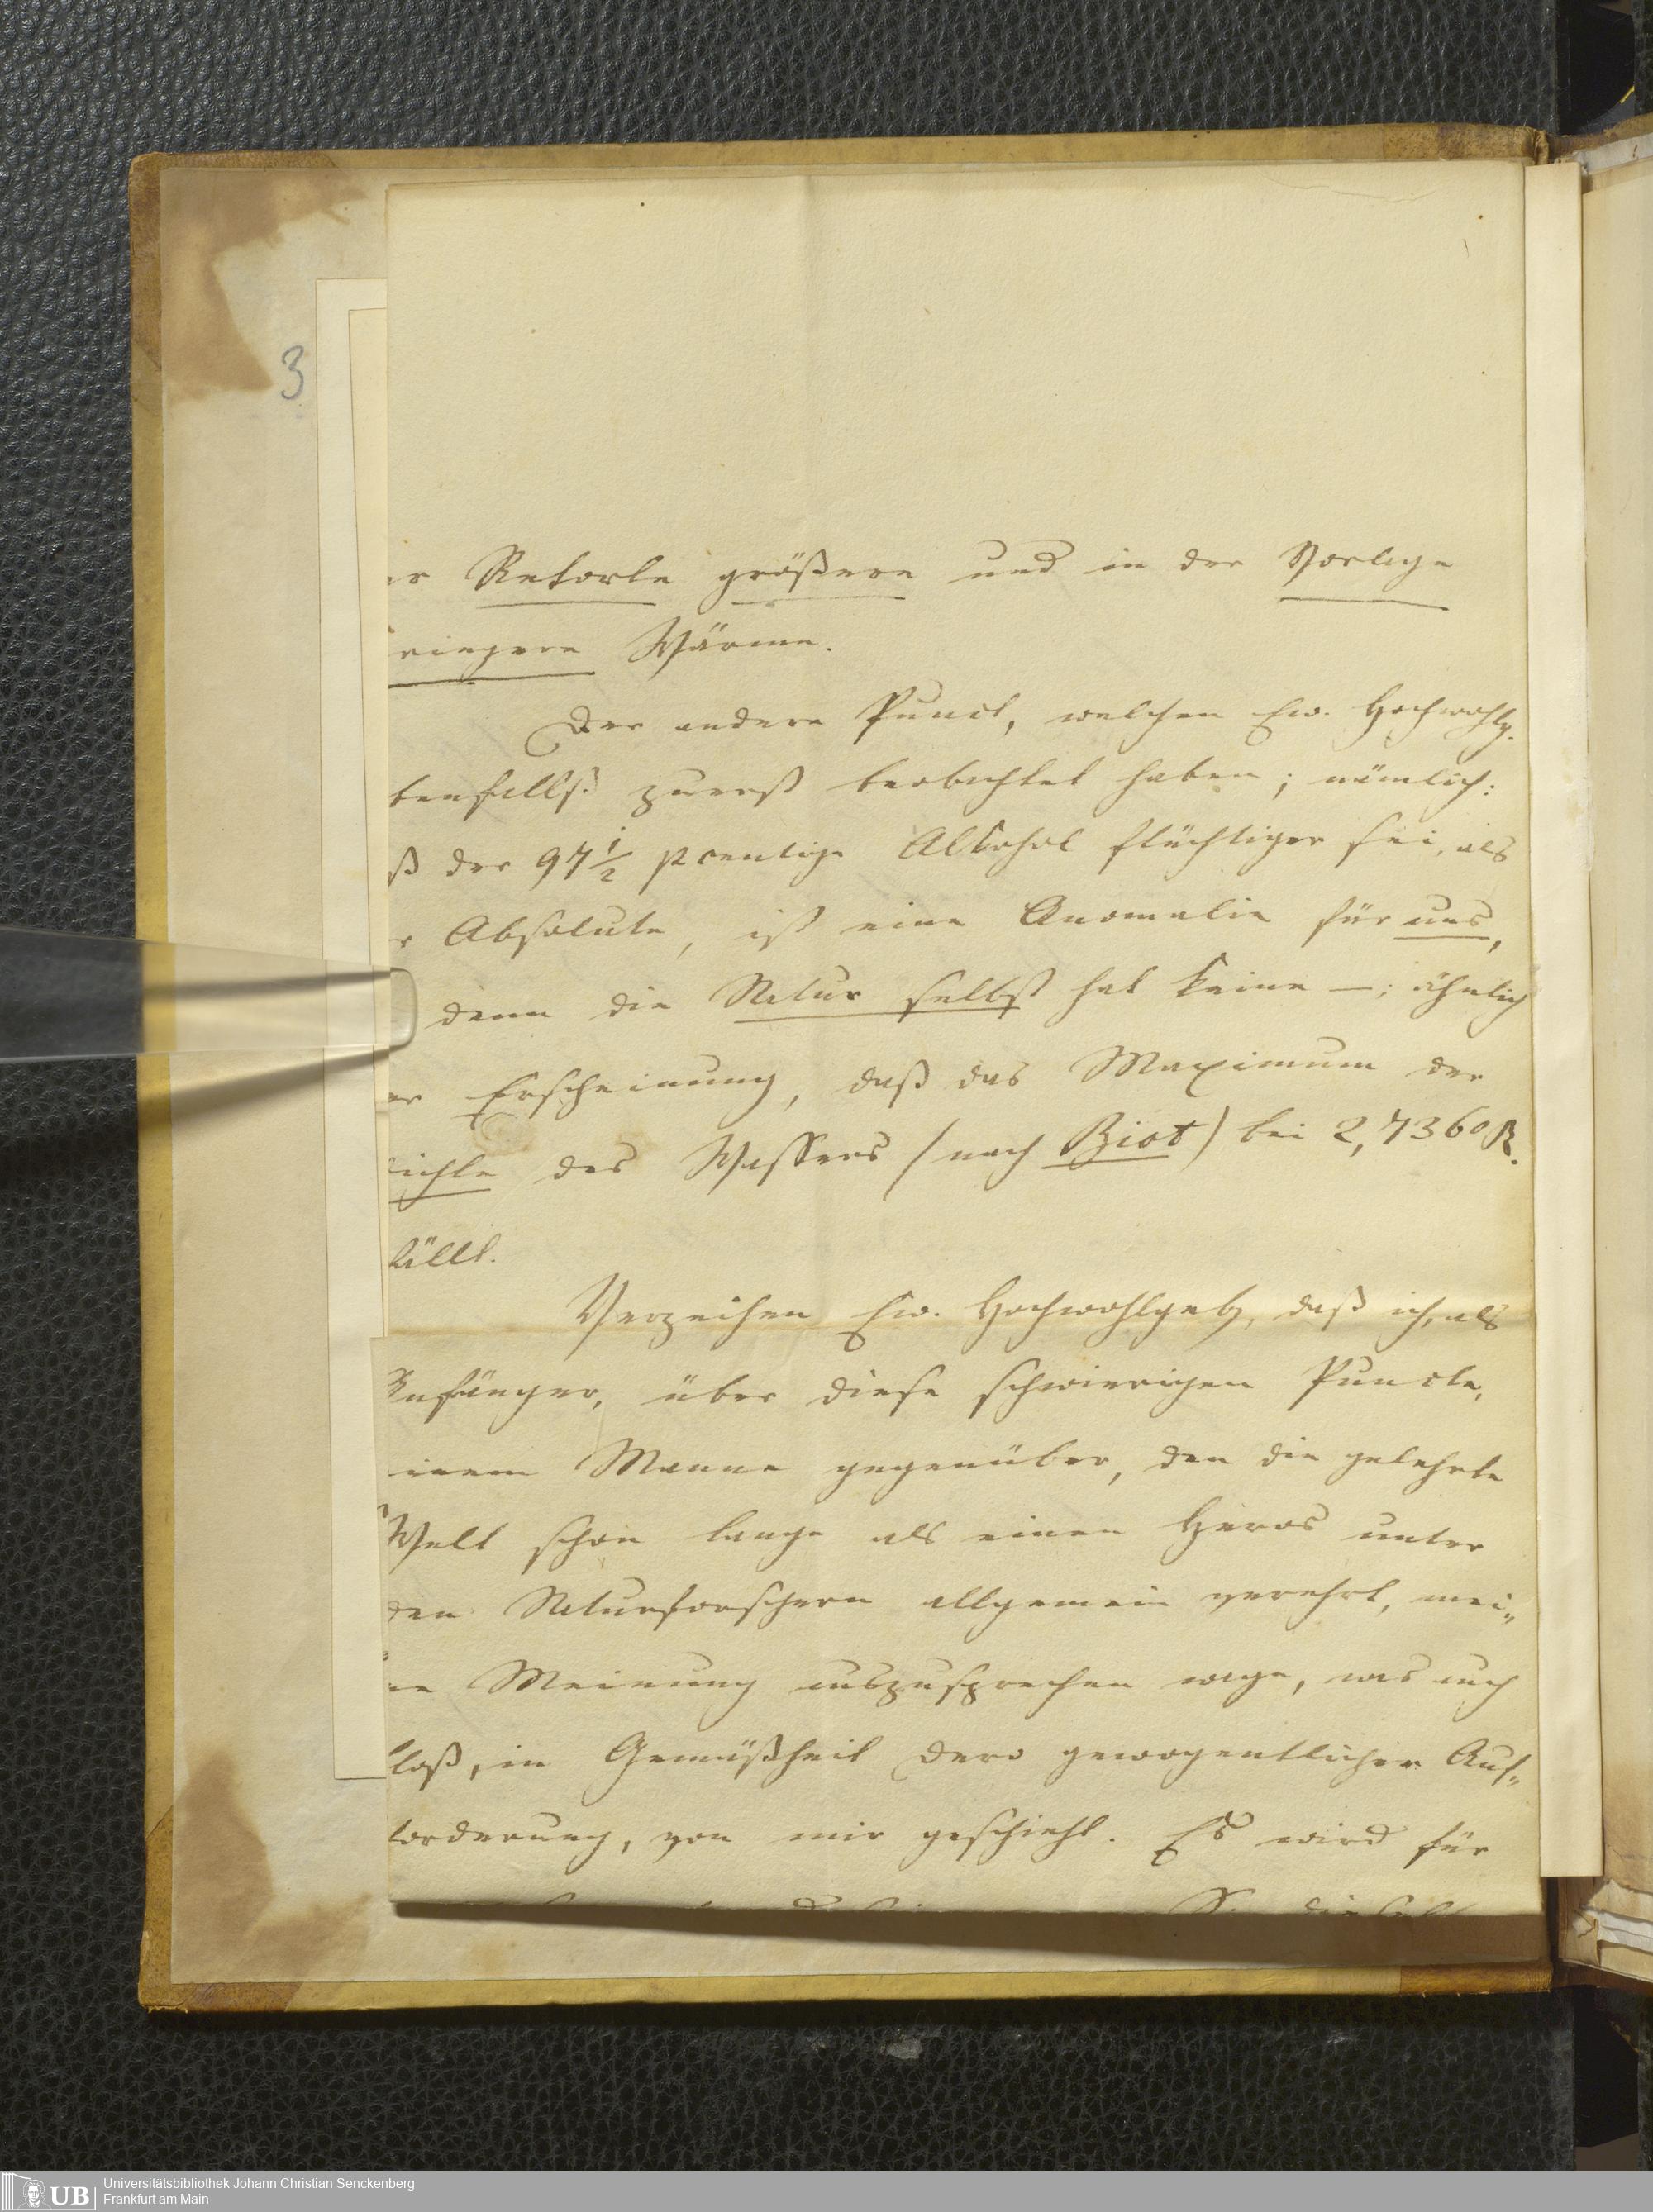 3
er Retorte größere und in der Vorlage
eringere Wärme.
Der andere Punct, welchen Ew. Hochwohlg.
benfalls zuerst beobachtet haben; nämlich:
ß der 97½ pcentige Alkohol flüchtiger sei, als
r Absolute, ist eine Anomalie für uns,
denn die Natur selbst hat keine —; ähnlich
er Erscheinung, daß das Maximum der
ichte des Wassers (nach Biot) bei 2,736° R.
fällt.
Verzeihen Ew. Hochwohlgeb, daß ich, als
Anfänger, über diese schwierigen Puncte,
einem Manne gegenüber, den die gelehrte
Welt schon lange als einen Heros unter
den Naturforschern allgemein verehrt, mei„
ne Meinung auszusprechen wage, was auch
bloß, in Gemäßheit dero gewogentlicher Auf„
forderung, von mir geschieht. Es wird für
UB Universitätsbibliothek Johann Christian Senckenberg
Frankfurt am Main